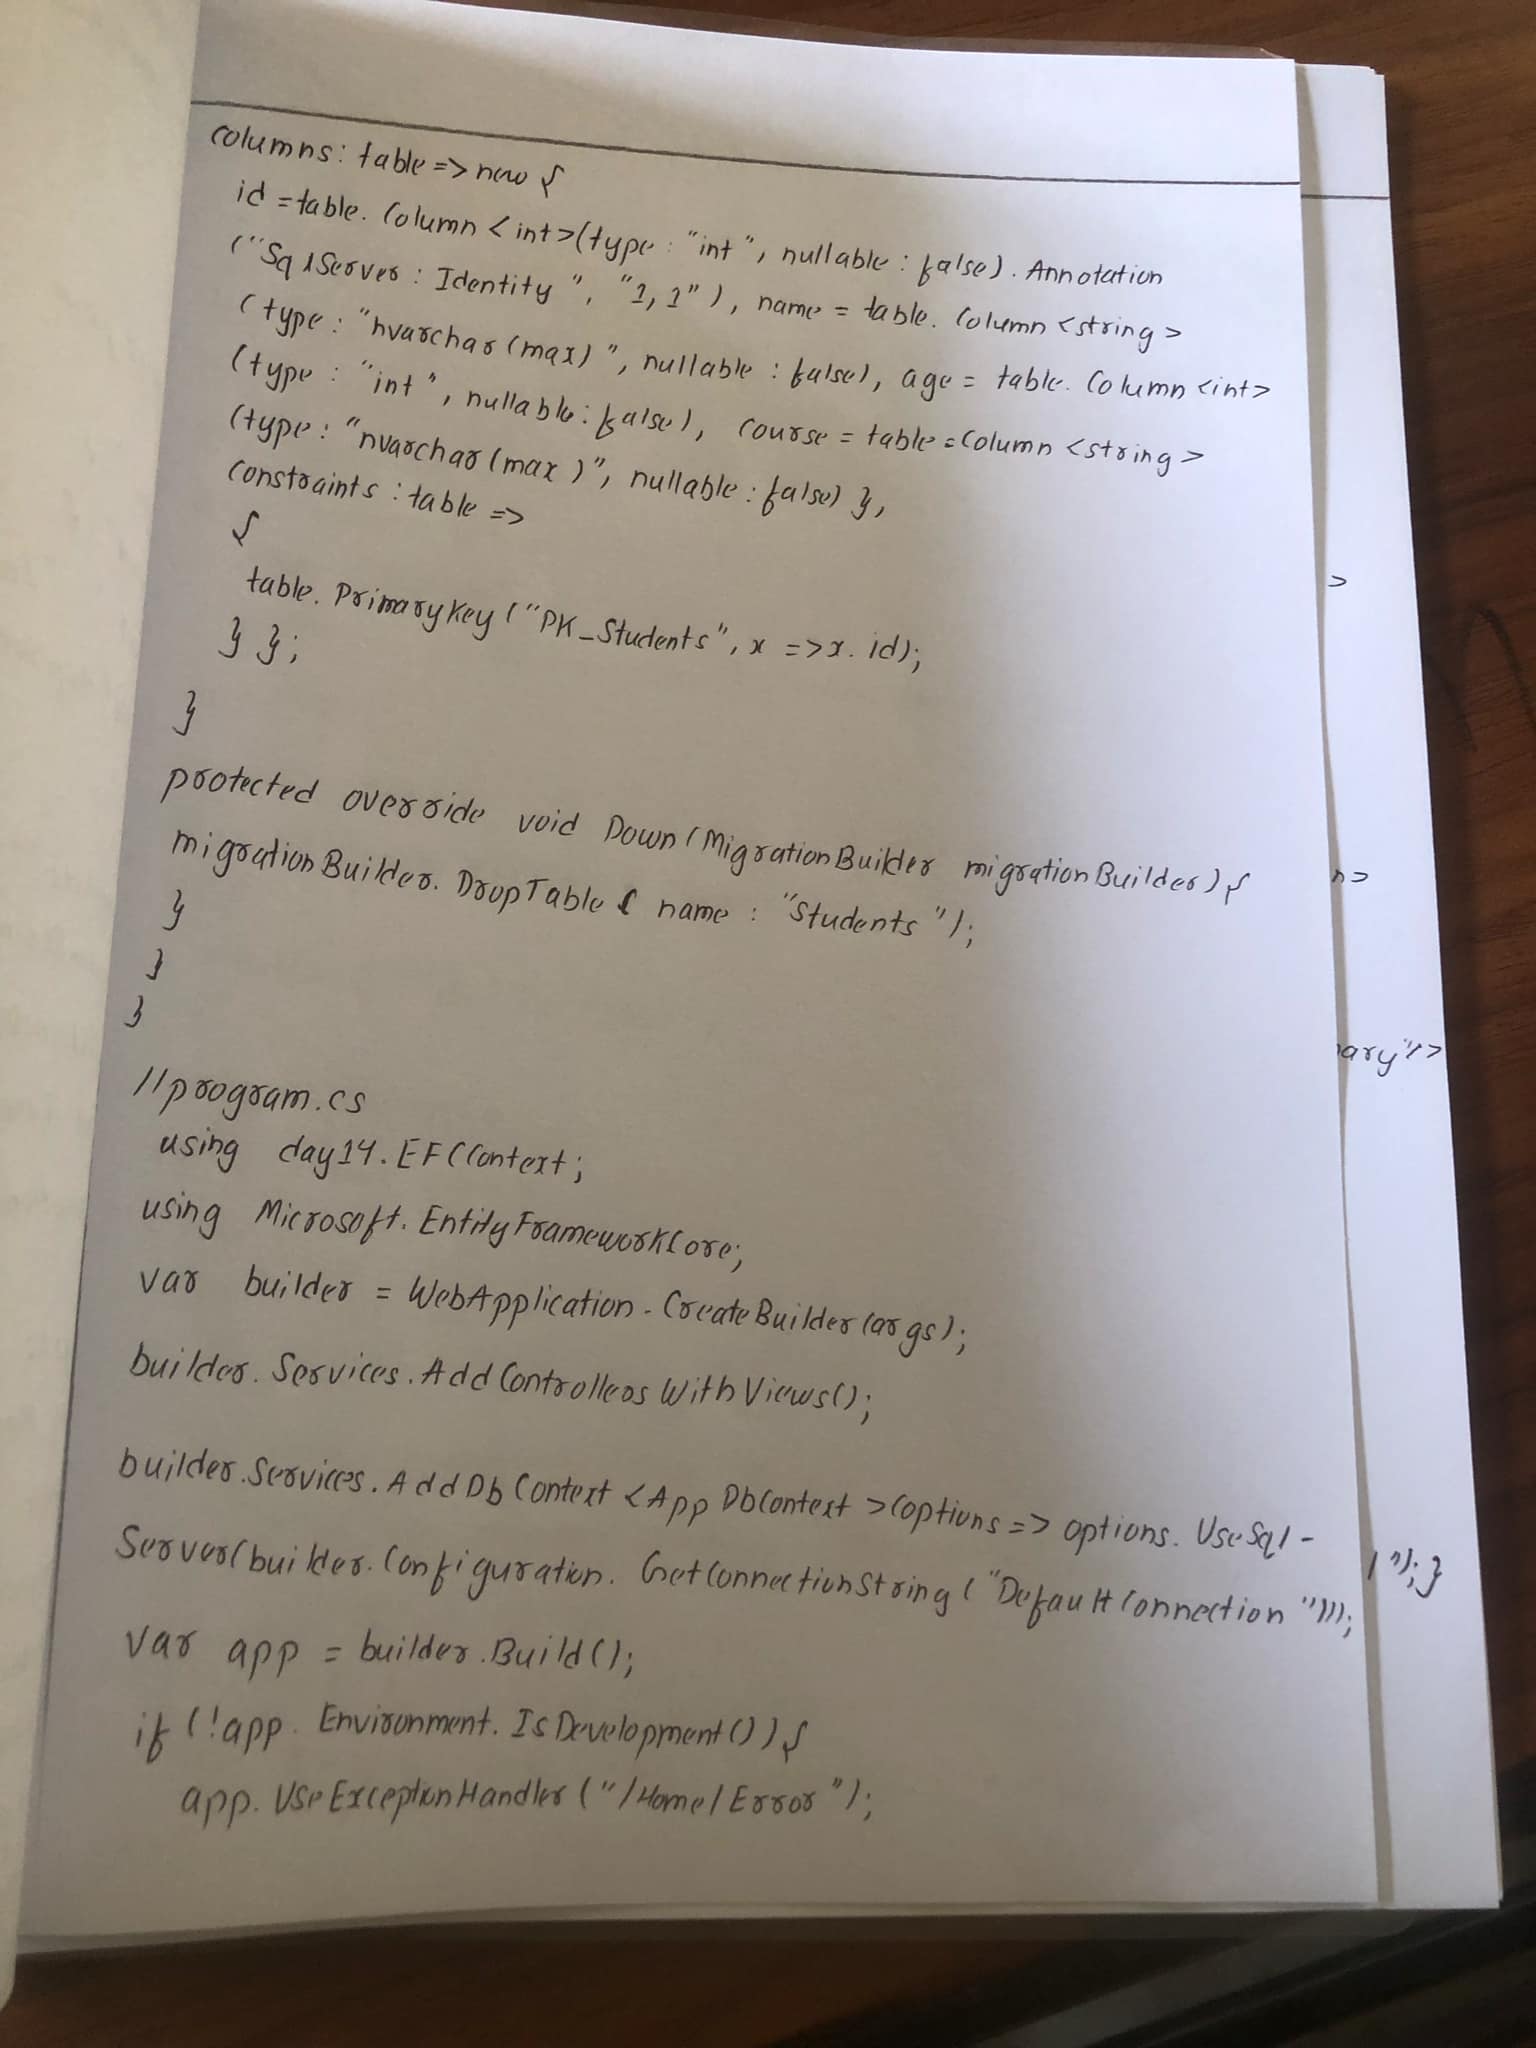 columns: table => new {
id = table. Column <int>(type : "int", nullable : false). Annotation
("SqlServer : Identity", "1, 1"), name = table. Column <string>
(type : "nvarchar (max)", nullable : false), age = table. Column <int>
(type : "int", nullable : false), course = table = Column <string>
(type : "nvarchar (max)", nullable : false) },
constraints : table =>
{
table. PrimaryKey ("PK_Students", x => x. id);
} };
}
protected override void Down (MigrationBuilder migrationBuilder) {
migrationBuilder. DropTable ( name : "Students");
}
}
}
//program.cs
using day14. EFCContext;
using Microsoft. EntityFrameworkCore;
var builder = WebApplication. CreateBuilder (args);
builder. Services. AddControllersWithViews();
builder. Services. AddDbContext <AppDbContext >(options => options. UseSql-
Server(builder. Configuration. GetConnectionString ("DefaultConnection")));
var app = builder. Build();
if (!app. Environment. IsDevelopment()) {
app. UseExceptionHandler ("/Home/Error");
>
n>
ary"/>
");}